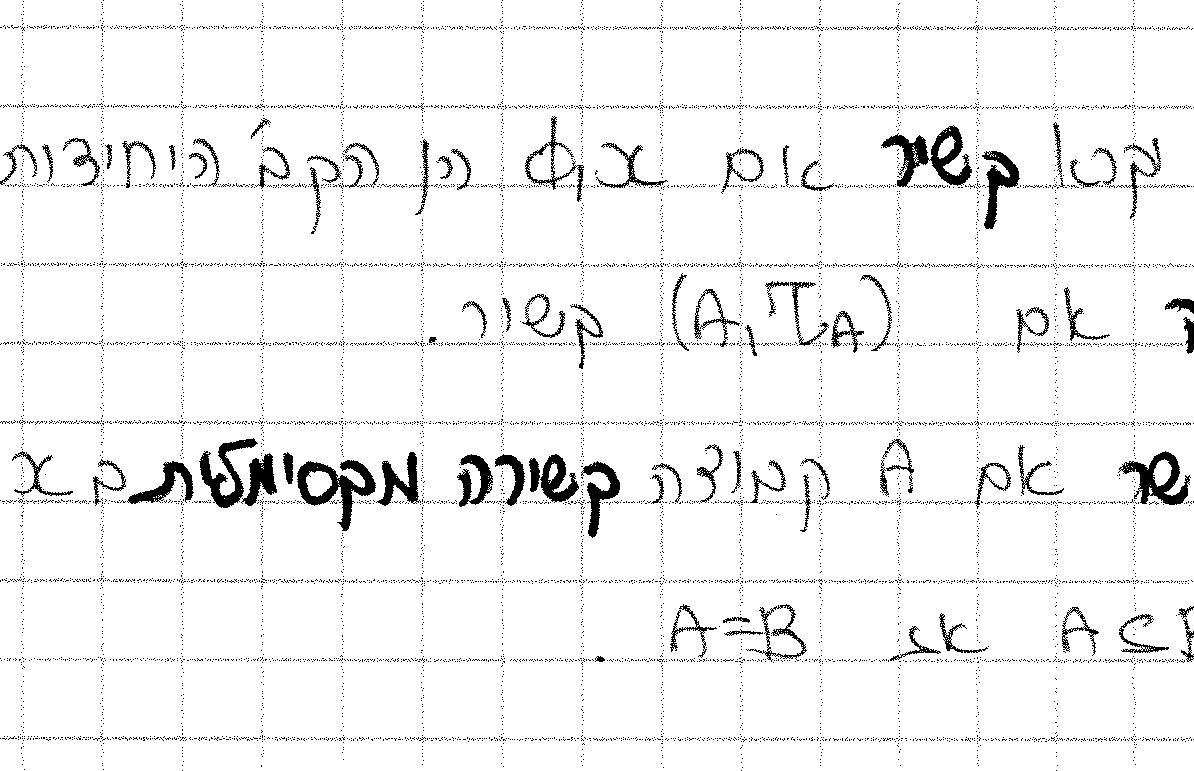 נקרא קשיר אם X,ϕ הן הקב' היחידות
ה אם (A,τ_A) קשיר.
שר אם A קבוצה קשורה מקסימלית ב X
A⊆B אז A=B.